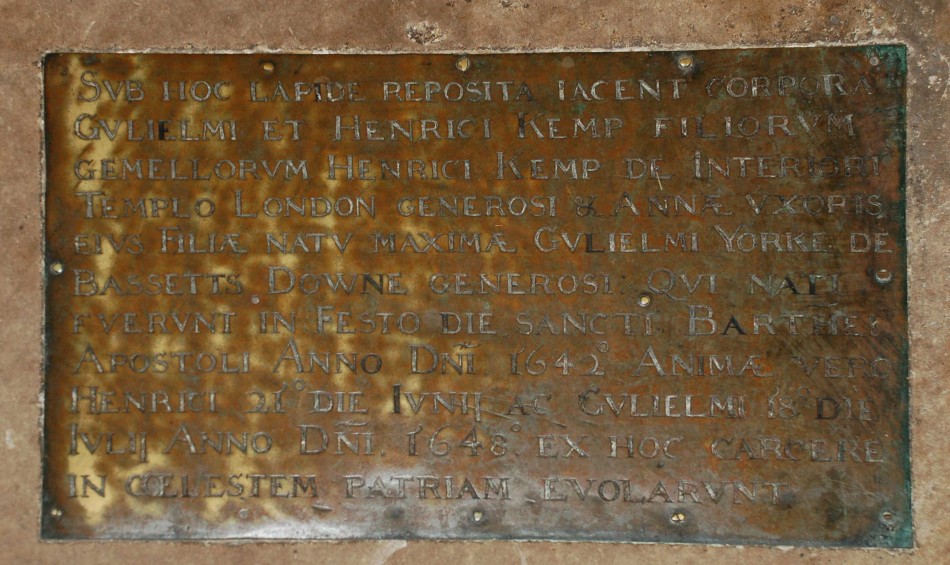 SVB HOC LAPIDE REPOSITA IACENT CORPORA
GVLIELMI ET HENRICI KEMP FILIORVM
GEMELLORVM HENRICI KEMP DE INTERIORI
TEMPLO LONDON GENEROSI & ANNÆ VXORIS
EIVS FILIÆ NATV MAXIMÆ GVLIELMI YORKE DE
BASSETTS DOWNE GENEROSI QVI NATI
FVERVNT IN FESTO DIE SANCTI BARTHEI
APOSTOLI ANNO DÑI 1642º ANIMÆ VERO
HENRICI 21º DIE IVNIJ AC GVLIELMI 18º DIE
IVLIJ ANNO DÑI 1648º EX HOC CARCERE
IN CŒLESTEM PATRIAM EVOLARVNT